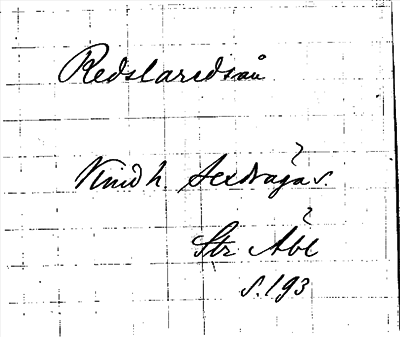 Redslaredsån
Kind h Sexdraga s.
Str Åbl
s. 193